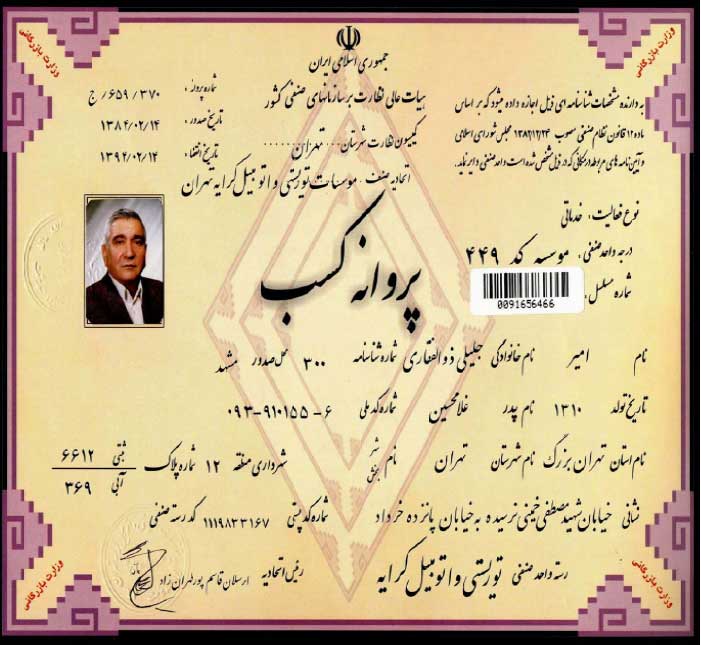 جمهوری اسلامی ایران
هیات عالی نظارت بر سازمانهای صنفی کشور
کمیسیون نظارت شهرستان تهران
اتحادیه صنف موسسات توریستی و اتومبیل کرایه تهران
به دارنده مشخصات شناسنامه ای ذیل اجازه داده میشود که بر اساس
ماده ۱۲ قانون نظام صنفی مصوب ۱۳۸۲/۱۲/۲۴ مجلس شورای اسلامی
و آیین نامه های مربوطه در مکانی که در ذیل مشخص شده است واحد صنفی دایر نماید.
شماره پروانه ۳۷۰ /۶۵۹/ ج
تاریخ صدور ۱۳۸۴/۰۲/۱۴
تاریخ انقضاء ۱۳۹۴/۰۲/۱۴
نوع فعالیت: خدماتی
درجه واحد صنفی: موسسه کد ۴۴۹
شماره مسلسل:
0091656466
پروانه کسب
نام امیر نام خانوادگی جلیلی ذوالفقاری شماره شناسنامه ۳۰۰ محل صدور مشهد
تاریخ تولد ۱۳۱۰ نام پدر غلامحسین شماره کد ملی ۰۹۳-۹۱۰۱۵۵-۶
نام استان تهران بزرگ نام شهرستان تهران نام شهر بخش شهرداری منطقه ۱۲ شماره پلاک ثبتی ۶۶۱۲ آبی ۳۶۹
نشانی خیابان شهید مصطفی خمینی نرسیده به خیابان پانزده خرداد شماره کد پستی ۱۱۱۹۸۳۳۱۶۷ کد رسته صنفی
رسته واحد صنفی توریستی و اتومبیل کرایه رئیس اتحادیه ارسلان قاسم پور تهران زاد
وزارت بازرگانی
وزارت بازرگانی
وزارت بازرگانی
وزارت بازرگانی